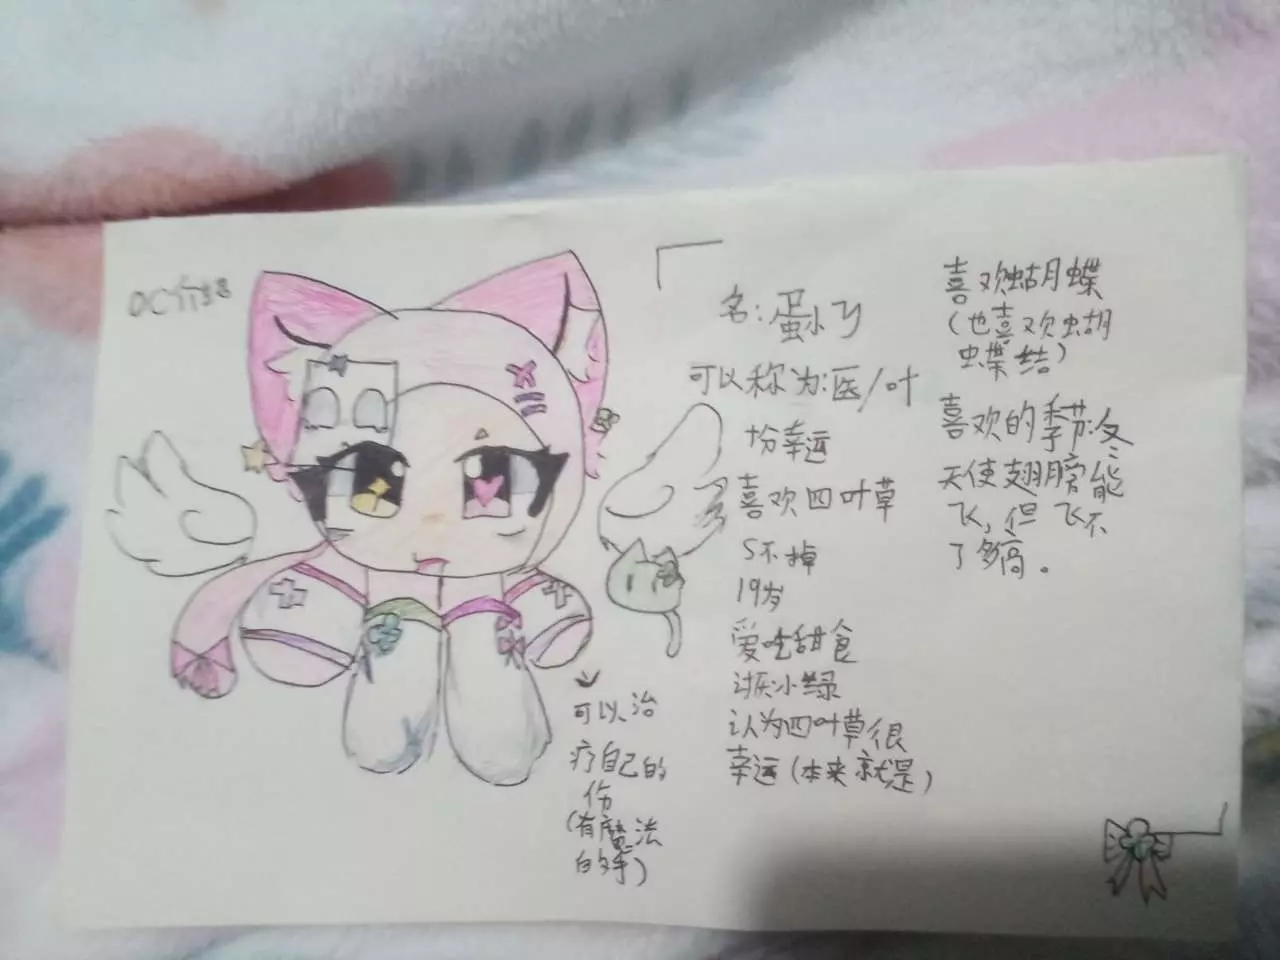 OC介绍
名:蛋小丫
可以称为:医/叶
十分幸运
喜欢四叶草
S不掉
19岁
爱吃甜食
讨厌小绿
认为四叶草很
幸运(本来就是)
喜欢蝴蝶
(也喜欢蝴
蝶结)
喜欢的季节:冬
天使翅膀能
飞,但飞不
了多高。
可以治
疗自己的
伤
(有魔法
的手)